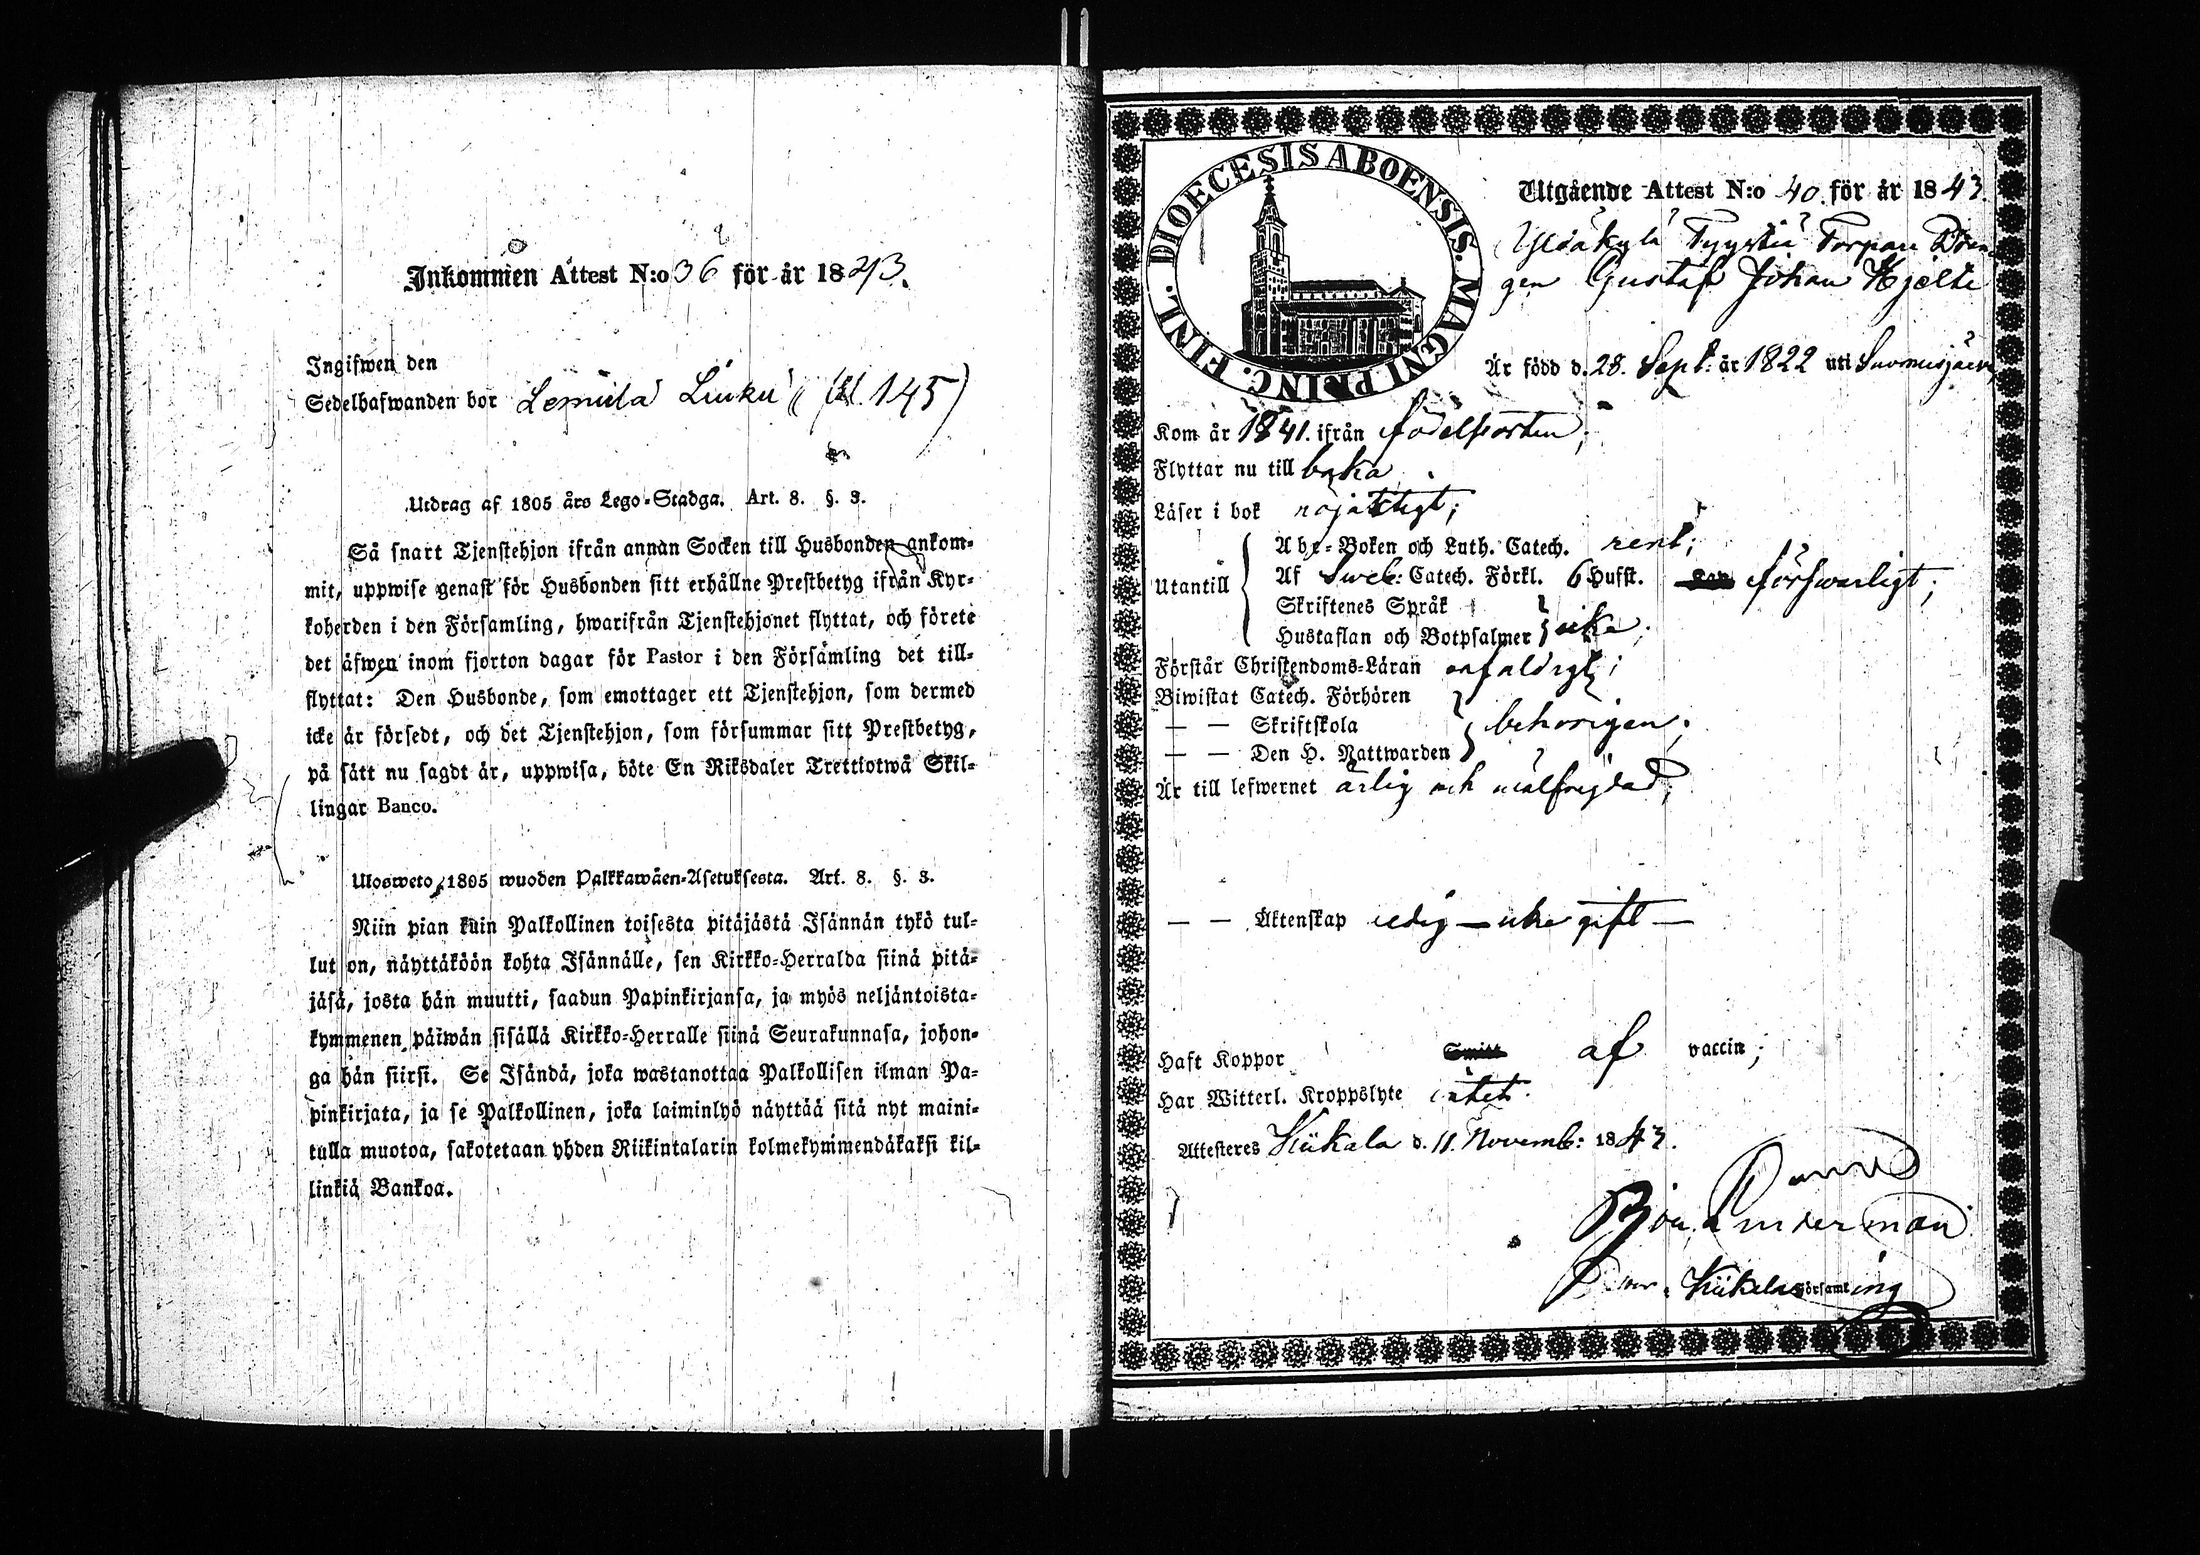 Inkommen Attest N:o 36 för år 1843.
Ingifwen den
Sedelhafwanden bor Lemula Liuku (Pl. 145)
Utdrag af 1805 års Lego-Stadga. Art. 8. §. 3.
Så snart Tjenstehjon ifrån annan Socken till Husbonden ankom-
mit, uppwise genast för Husbonden sitt erhållne Prestbetyg ifrån Kyr-
koherden i den Församling, hwarifrån Tjenstehjonet flyttat, och förete
det äfwen inom fjorton dagar för Pastor i den Församling det till-
flyttat: Den Husbonde, som emottager ett Tjenstehjon, som dermed
icke är försedt, och det Tjenstehjon, som försummar sitt Prestbetyg,
på sätt nu sagdt är, uppwisa, böte En Riksdaler Trettiotwå Skil-
lingar Banco.
Ulosweto 1805 wuoden Palkkawäen-Asetuksesta. Art. 8. §. 3.
Niin pian kuin Palkollinen toisesta pitäjästä Isännän tykö tul-
lut on, näyttäköön kohta Isännälle, sen Kirkko-Herralda siinä pitä-
jäsä, josta hän muutti, saadun Papinkirjansa, ja myös neljäntoista-
kymmenen päiwän sisällä Kirkko-Herralle siinä Seurakunnasa, johon-
ga hän siirsi. Se Isändä, joka wastanottaa Palkollisen ilman Pa-
pinkirjata, ja se Palkollinen, joka laiminlyö näyttää sitä nyt maini-
tulla muotoa, sakotetaan yhden Riikintalarin kolmekymmendäkaksi kil-
linkiä Bankoa.
DIOECESIS ABOENSIS. MAGNI PRINC. FINL.
Utgående Attest N:o 40 för år 1843.
Yltäkylä Tyystiä Torpare Drän-
gen Gustaf Johan Hjelte
Är född d. 28. Sept: år 1822 uti Suomusjärvi
Kom år 1841. ifrån födelseorten;
Flyttar nu till baka
Läser i bok nöjaktigt;
Utantill
Abc-Boken och Luth. Catech. rent;
Af Sweb: Catech. Förkl. 6 Hufst. försvarligt;
Skriftenes Språk
Hustaflan och Botpsalmer icke.
Förstår Christendoms-Läran enfaldigt;
Biwistat Catech. Förhören
— — Skriftskola behörigen;
— — Den H. Nattwarden
Är till lefwernet ärlig och välfrejdad;
— — Äktenskap ledig — icke gift —
Haft Koppor af vaccin;
Har Witterl. Kroppslyte intet.
Attesteras Kiikala d. 11. Novemb: 1843.
Kiikala Församling